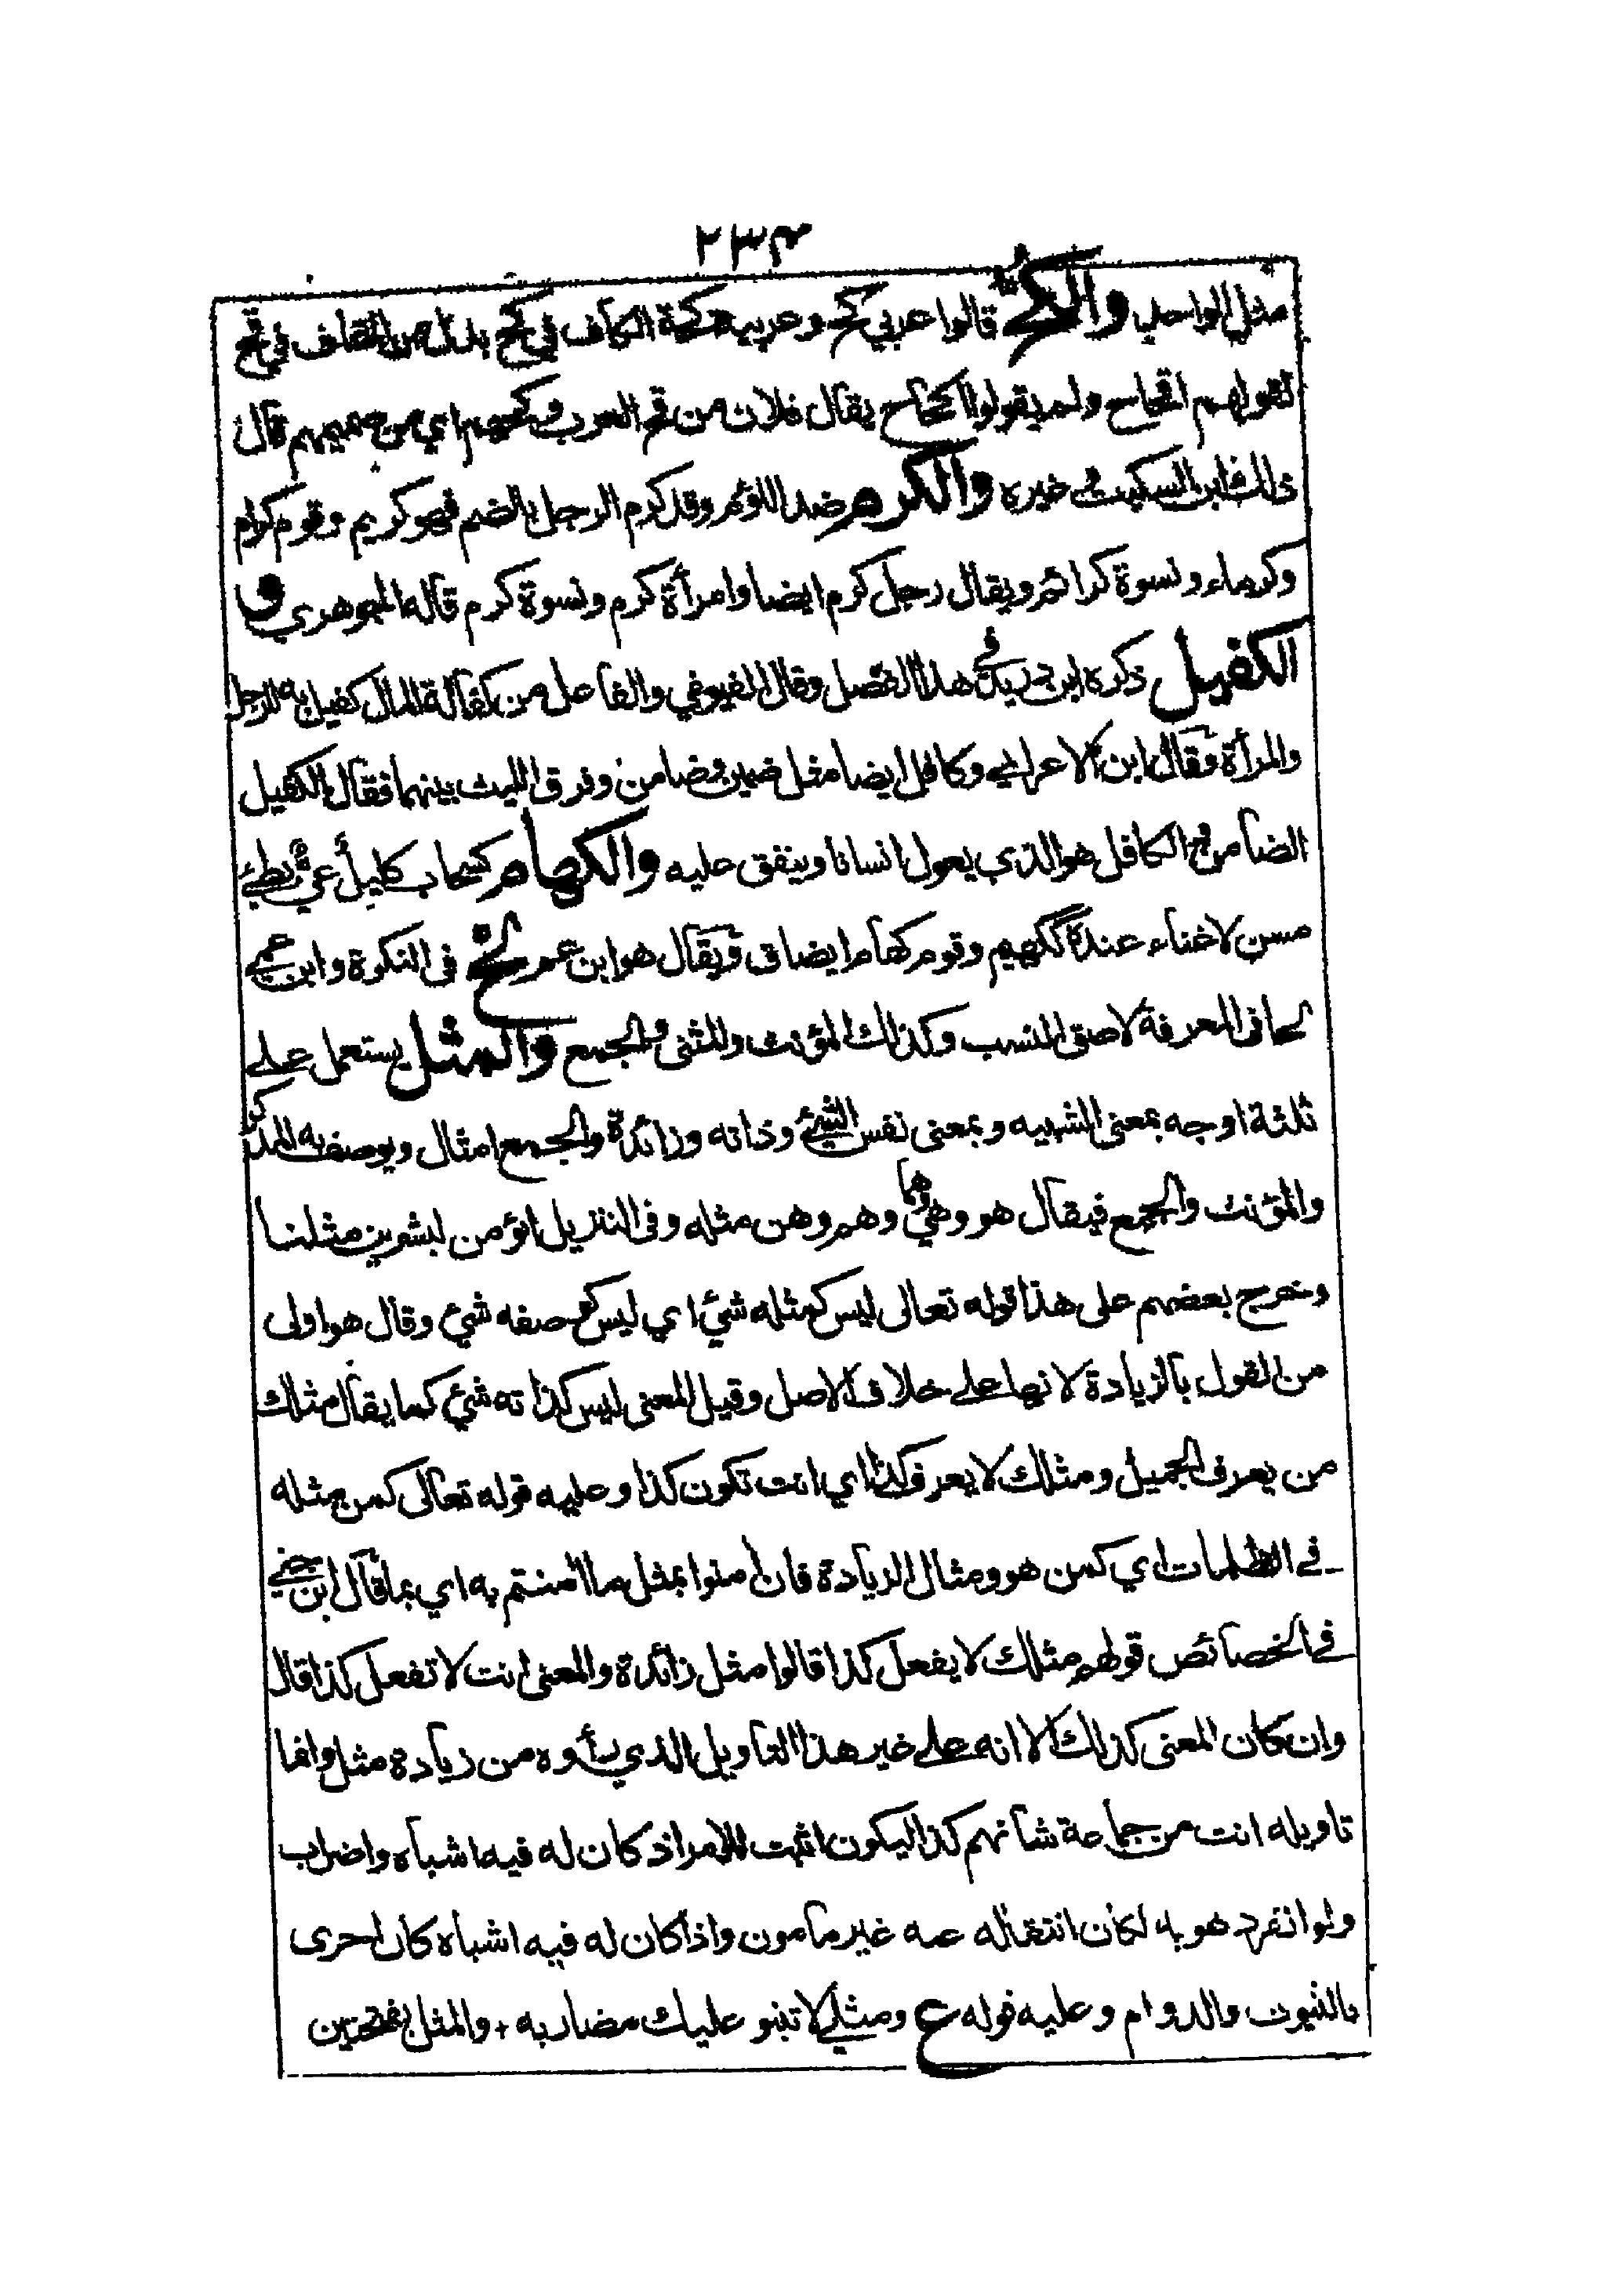 ٢٣٤
مثل الواحد والكح قالوا عربي كح وعربية كحة الكاف في كح بدل من القاف في قح
لقولهم اقحاح ولم يقولوا اكحاح يقال فلان من قح العرب وكحهم اي من صميمهم قال
ذلك ابن السكيت في غيره والكرم ضد اللؤم وقد كرم الرجل بالضم فهو كريم وقوم كرام
وكرماء ونسوة كرائم ويقال رجل كرم ايضا وامرأة كرم ونسوة كرم قاله الجوهري و
الكفيل ذكره ابن دريد في هذا الفصل وقال الفيومي والفاعل من كفالة المال كفيل به للرجل
والمرأة وقال ابن الاعرابي وكافل ايضا مثل ضمين وضامن وفرق الليث بينهما فقال الكفيل
الضامن و الكافل هو الذي يعول انسانا وينفق عليه والكهام كسحاب كليل عي بطئ
مسن لا غناء عنده ككهيم وقوم كهام ايضا ق ويقال هو ابن عم لح في النكرة وابن عمي
لحا في المعرفة لاصق النسب وكذلك المؤنث والمثنى والجمع والمثل يستعمل على
ثلثة اوجه بمعنى الشبيه وبمعنى نفس الشيئ وذاته وزائدة والجمع امثال ويوصف به المذكر
والمؤنث والجمع فيقال هو وهي وهما وهم وهن مثله وفي التنزيل انؤمن لبشرين مثلنا
وخرج بعضهم على هذا قوله تعالى ليس كمثله شئ اي ليس كوصفه شئ وقال هو اولى
من القول بالزيادة لانها على خلاف الاصل وقيل المعنى ليس كذاته شئ كما يقال مثلك
من يعرف الجميل ومثلك لا يعرف كذا اي انت تكون كذا وعليه قوله تعالى كمن مثله
في الظلمات اي كمن هو ومثال الزيادة فان امنوا بمثل ما امنتم به اي بما قال ابن جني
في الخصائص قولهم مثلك لا يفعل كذا قالوا مثل زائدة والمعنى انت لا تفعل كذا قال
وان كان المعنى كذلك الا انه على غير هذا التاويل الذي رأوه من زيادة مثل وانما
تاويله انت من جماعة شانهم كذا ليكون اثبت للامر اذ كان له فيه اشباه واضراب
ولو انفرد هو به لكان انتقاله عنه غير مأمون واذا كان له فيه اشباه كان احرى
بالثبوت والدوام وعليه قوله ع ومثلي لا تنبو عليك مضاربه + والمثل بفتحتين